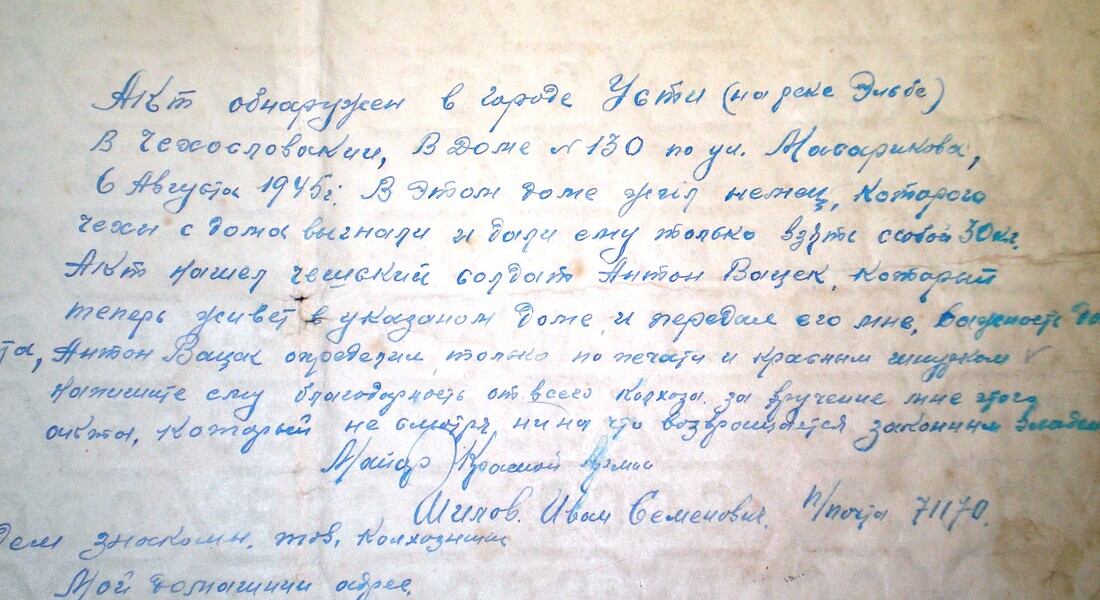 Акт обнаружен в городе Усти (на реке Эльбе)
В Чехословакии, В доме №130 по ул. Масарикова,
6 Августа 1945г. В этом доме жил немец, которого
чехи с дома выгнали и дали ему только взять с собой 30 кг.
Акт нашел чешский солдат Антон Вацек, который
теперь живет в указаном доме, и передал его мне. Важность да
та, Антон Вацак определил только по печати и красным шнурком
Напишите ему благодарность от всего колхоза за вручение мне этого
акта, который не смотря ни на что возвращается законным владе
Майор Красной Армии
Шилов. Иван Семенович. п/почта 71170.
дем знакомы, тов. колхозники
Мой домашний адрес.